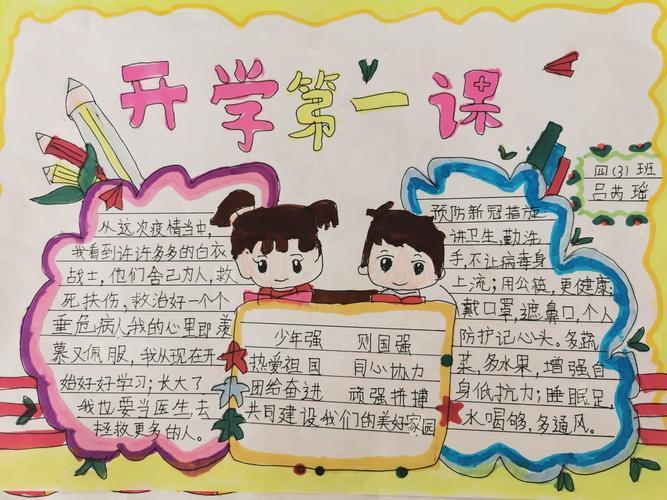 开学第一课
四(3)班
吕芮瑶
从这次疫情当中,
我看到许许多多的白衣
战士,他们舍己为人,救
死扶伤,救治好一个个
垂危病人我的心里即羡
慕又佩服,我从现在开
始好好学习;长大了
我也要当医生,去
拯救更多的人。
少年强 则国强
热爱祖国 同心协力
团结奋进 顽强拼搏
共同建设我们的美好家园
预防新冠措施
讲卫生,勤洗
手,不让病毒身
上流;用公筷,更健康;
戴口罩,遮鼻口,个人
防护记心头。多蔬
菜,多水果,增强自
身低抗力;睡眠足,
水喝够,多通风。